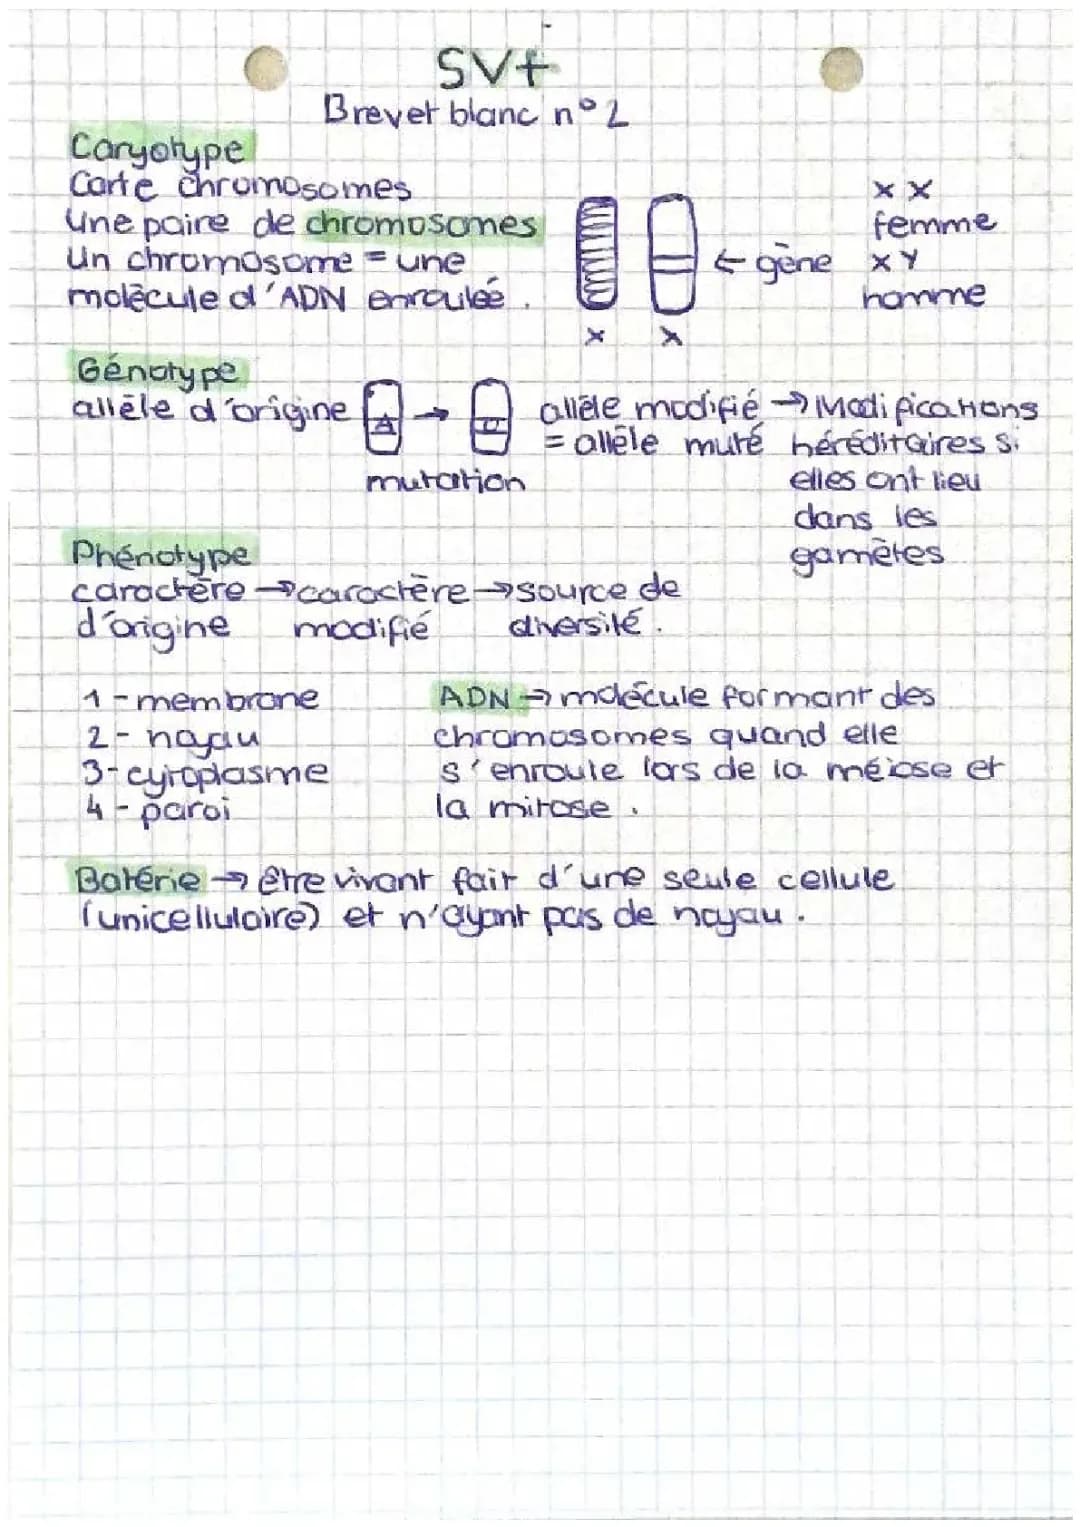 SVt
Brevet blanc n°2
Caryotype
Carte chromosomes
Une paire de chromosomes
Un chromosome = une
molécule d'ADN enroulée.
← gène
x x
x x
femme
x y
homme
Génotype
allèle d'origine
A
→
mutation
allèle modifié → Modifications
= allèle muté héréditaires si
elles ont lieu
dans les
gamètes
Phénotype
caractère → caractère → source de
d'origine modifié diversité.
1 - membrane
2 - noyau
3 - cytoplasme
4 - paroi
ADN → molécule formant des
chromosomes quand elle
s'enroule lors de la méiose et
la mitose.
Batérie → être vivant fait d'une seule cellule
(unicellulaire) et n'ayant pas de noyau.